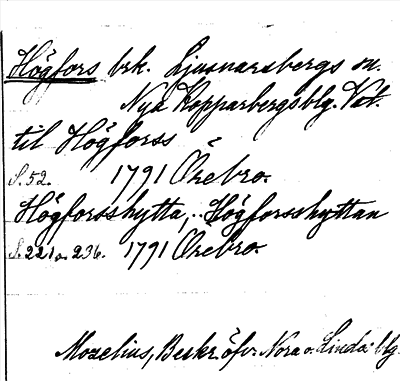 Högfors brk. Ljusnarsbergs sn.
Nya Kopparbergsblg. Vat.
til Högforss
S. 52. 1791 Örebro.
Högforsshytta, Högforsshyttan
S. 221 o. 236. 1791 Örebro.
Mozelius, Beskr. öfv. Nora o. Linda blg.